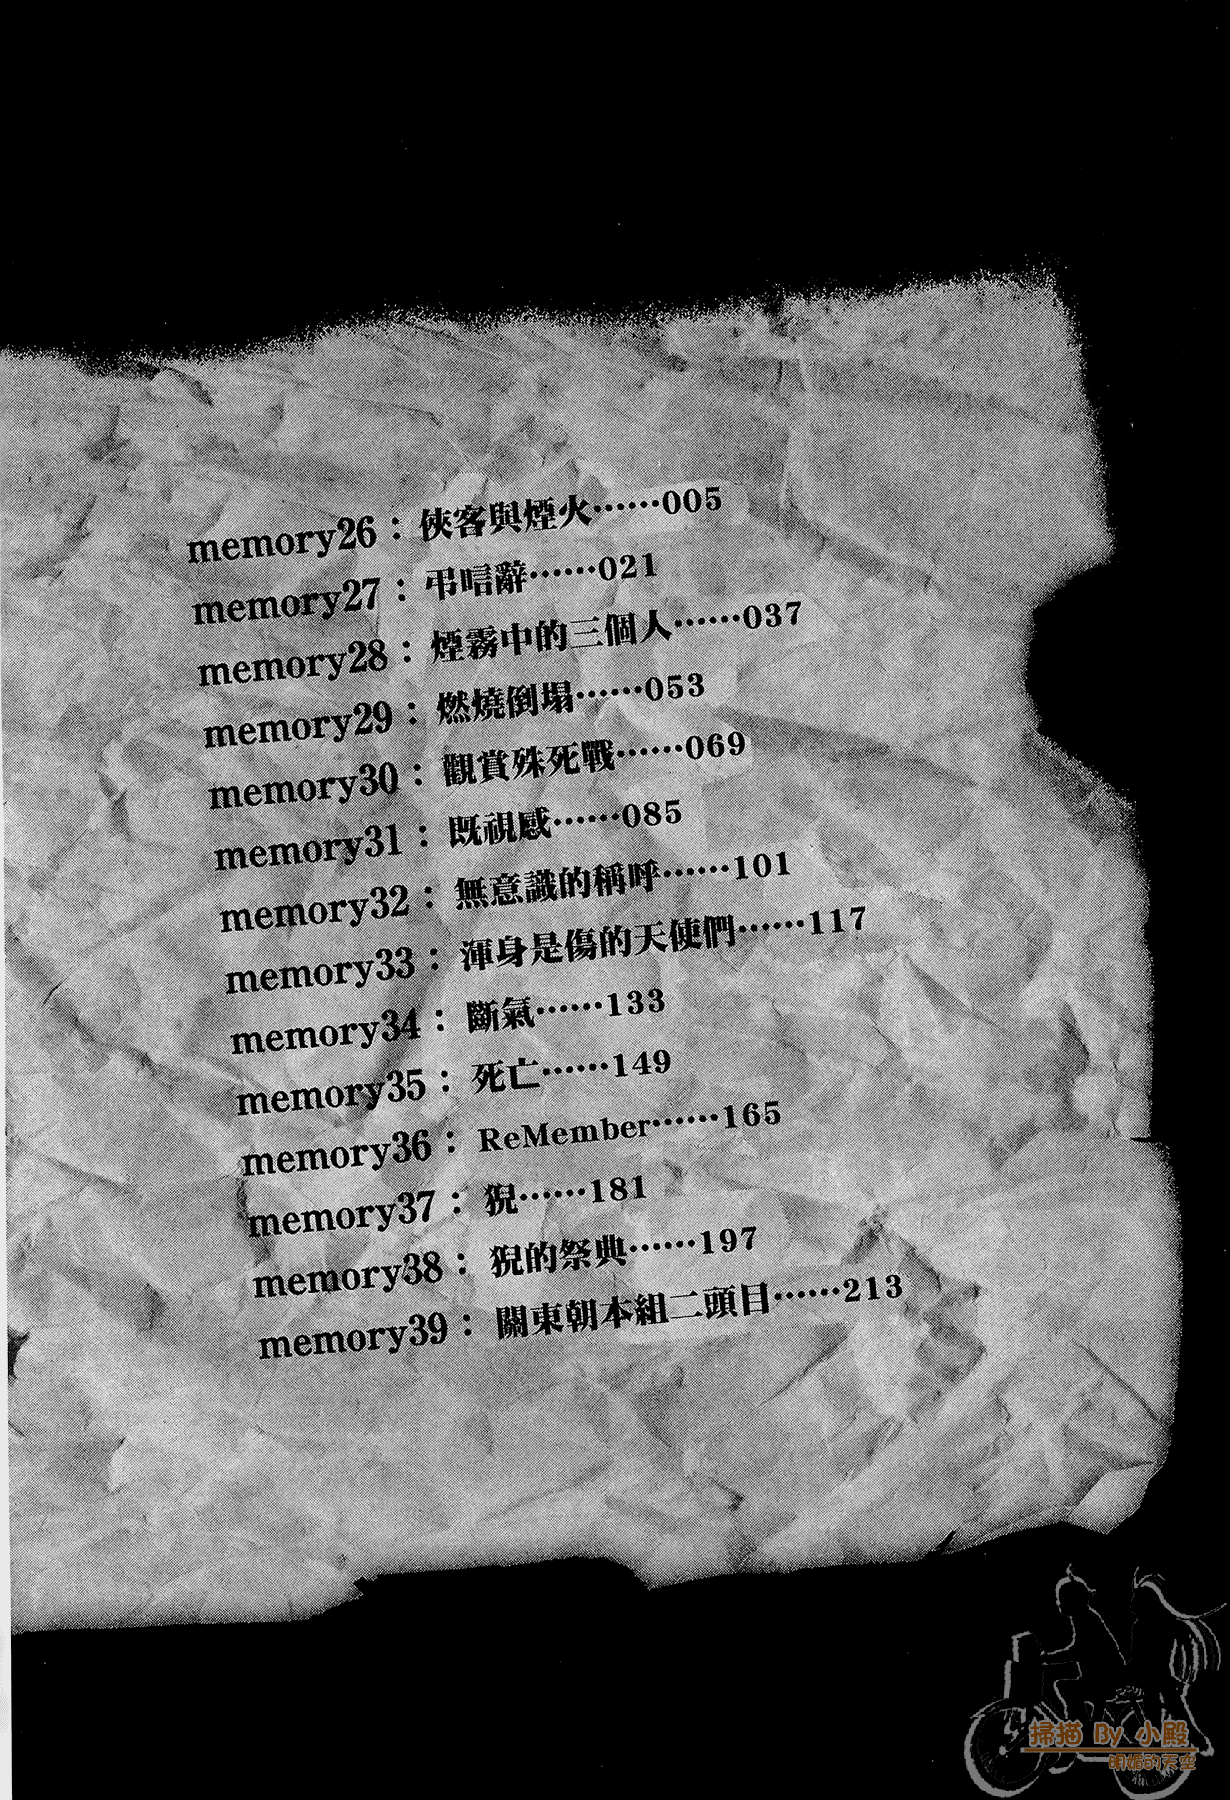 memory26：俠客與煙火……005
memory27：弔唁辭……021
memory28：煙霧中的三個人……037
memory29：燃燒倒塌……053
memory30：觀賞殊死戰……069
memory31：既視感……085
memory32：無意識的稱呼……101
memory33：渾身是傷的天使們……117
memory34：斷氣……133
memory35：死亡……149
memory36：ReMember……165
memory37：猊……181
memory38：猊的祭典……197
memory39：關東朝本組二頭目……213
掃描 By 小殿
明媚的天空